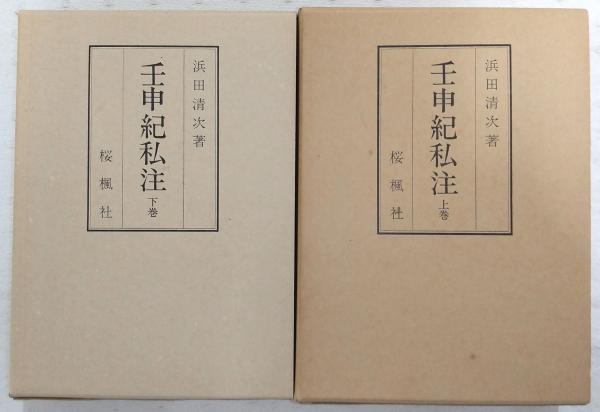 浜田清次著
壬申紀私注 上巻
桜楓社
浜田清次著
壬申紀私注 下巻
桜楓社